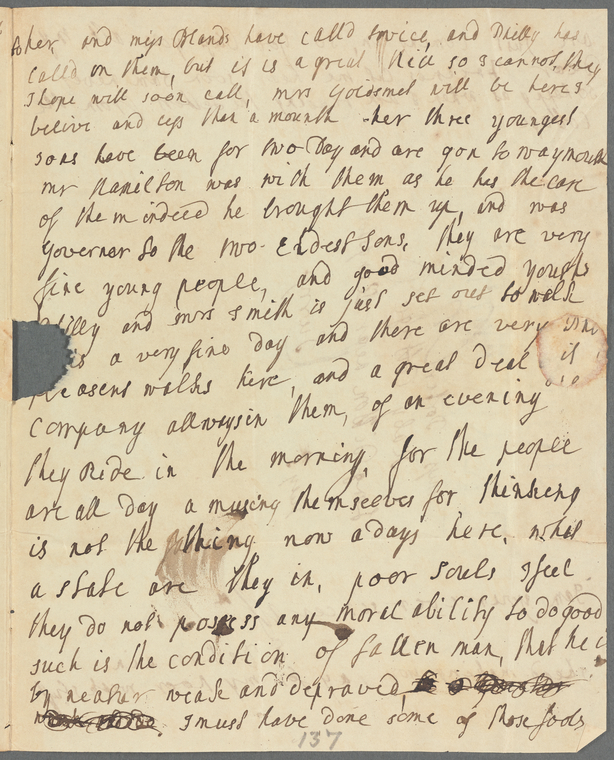 to her and miss Blands have calld twice, and Philly has
calld on them, but it is a great Hill so I cannot, they
I hope will soon call, mrs Goldsmet will be here I
belive and less than a mounth her three youngest
sons have been for two Day and are gon to waymouth
mr Hamilton was with them as he has the care
of them indeed he brought them up, and was
Governer to the two Eldest sons, they are very
fine young people, and good minded youths
Philly and mrs Smith is just set out to walk
is a very fine day and there are very
pleasens walks here, and a great Deal of
company allways in them, of an evening
they Ride in the morning, for the people
are all day a musing themselves for thinking
is not the thing now adays here, what
a state are they in, poor souls I feel
they do not possess any moral ability to do good
such is the condition of fallen man, that he is
by neatur weake and depraved,
I must have done some of those fools
137